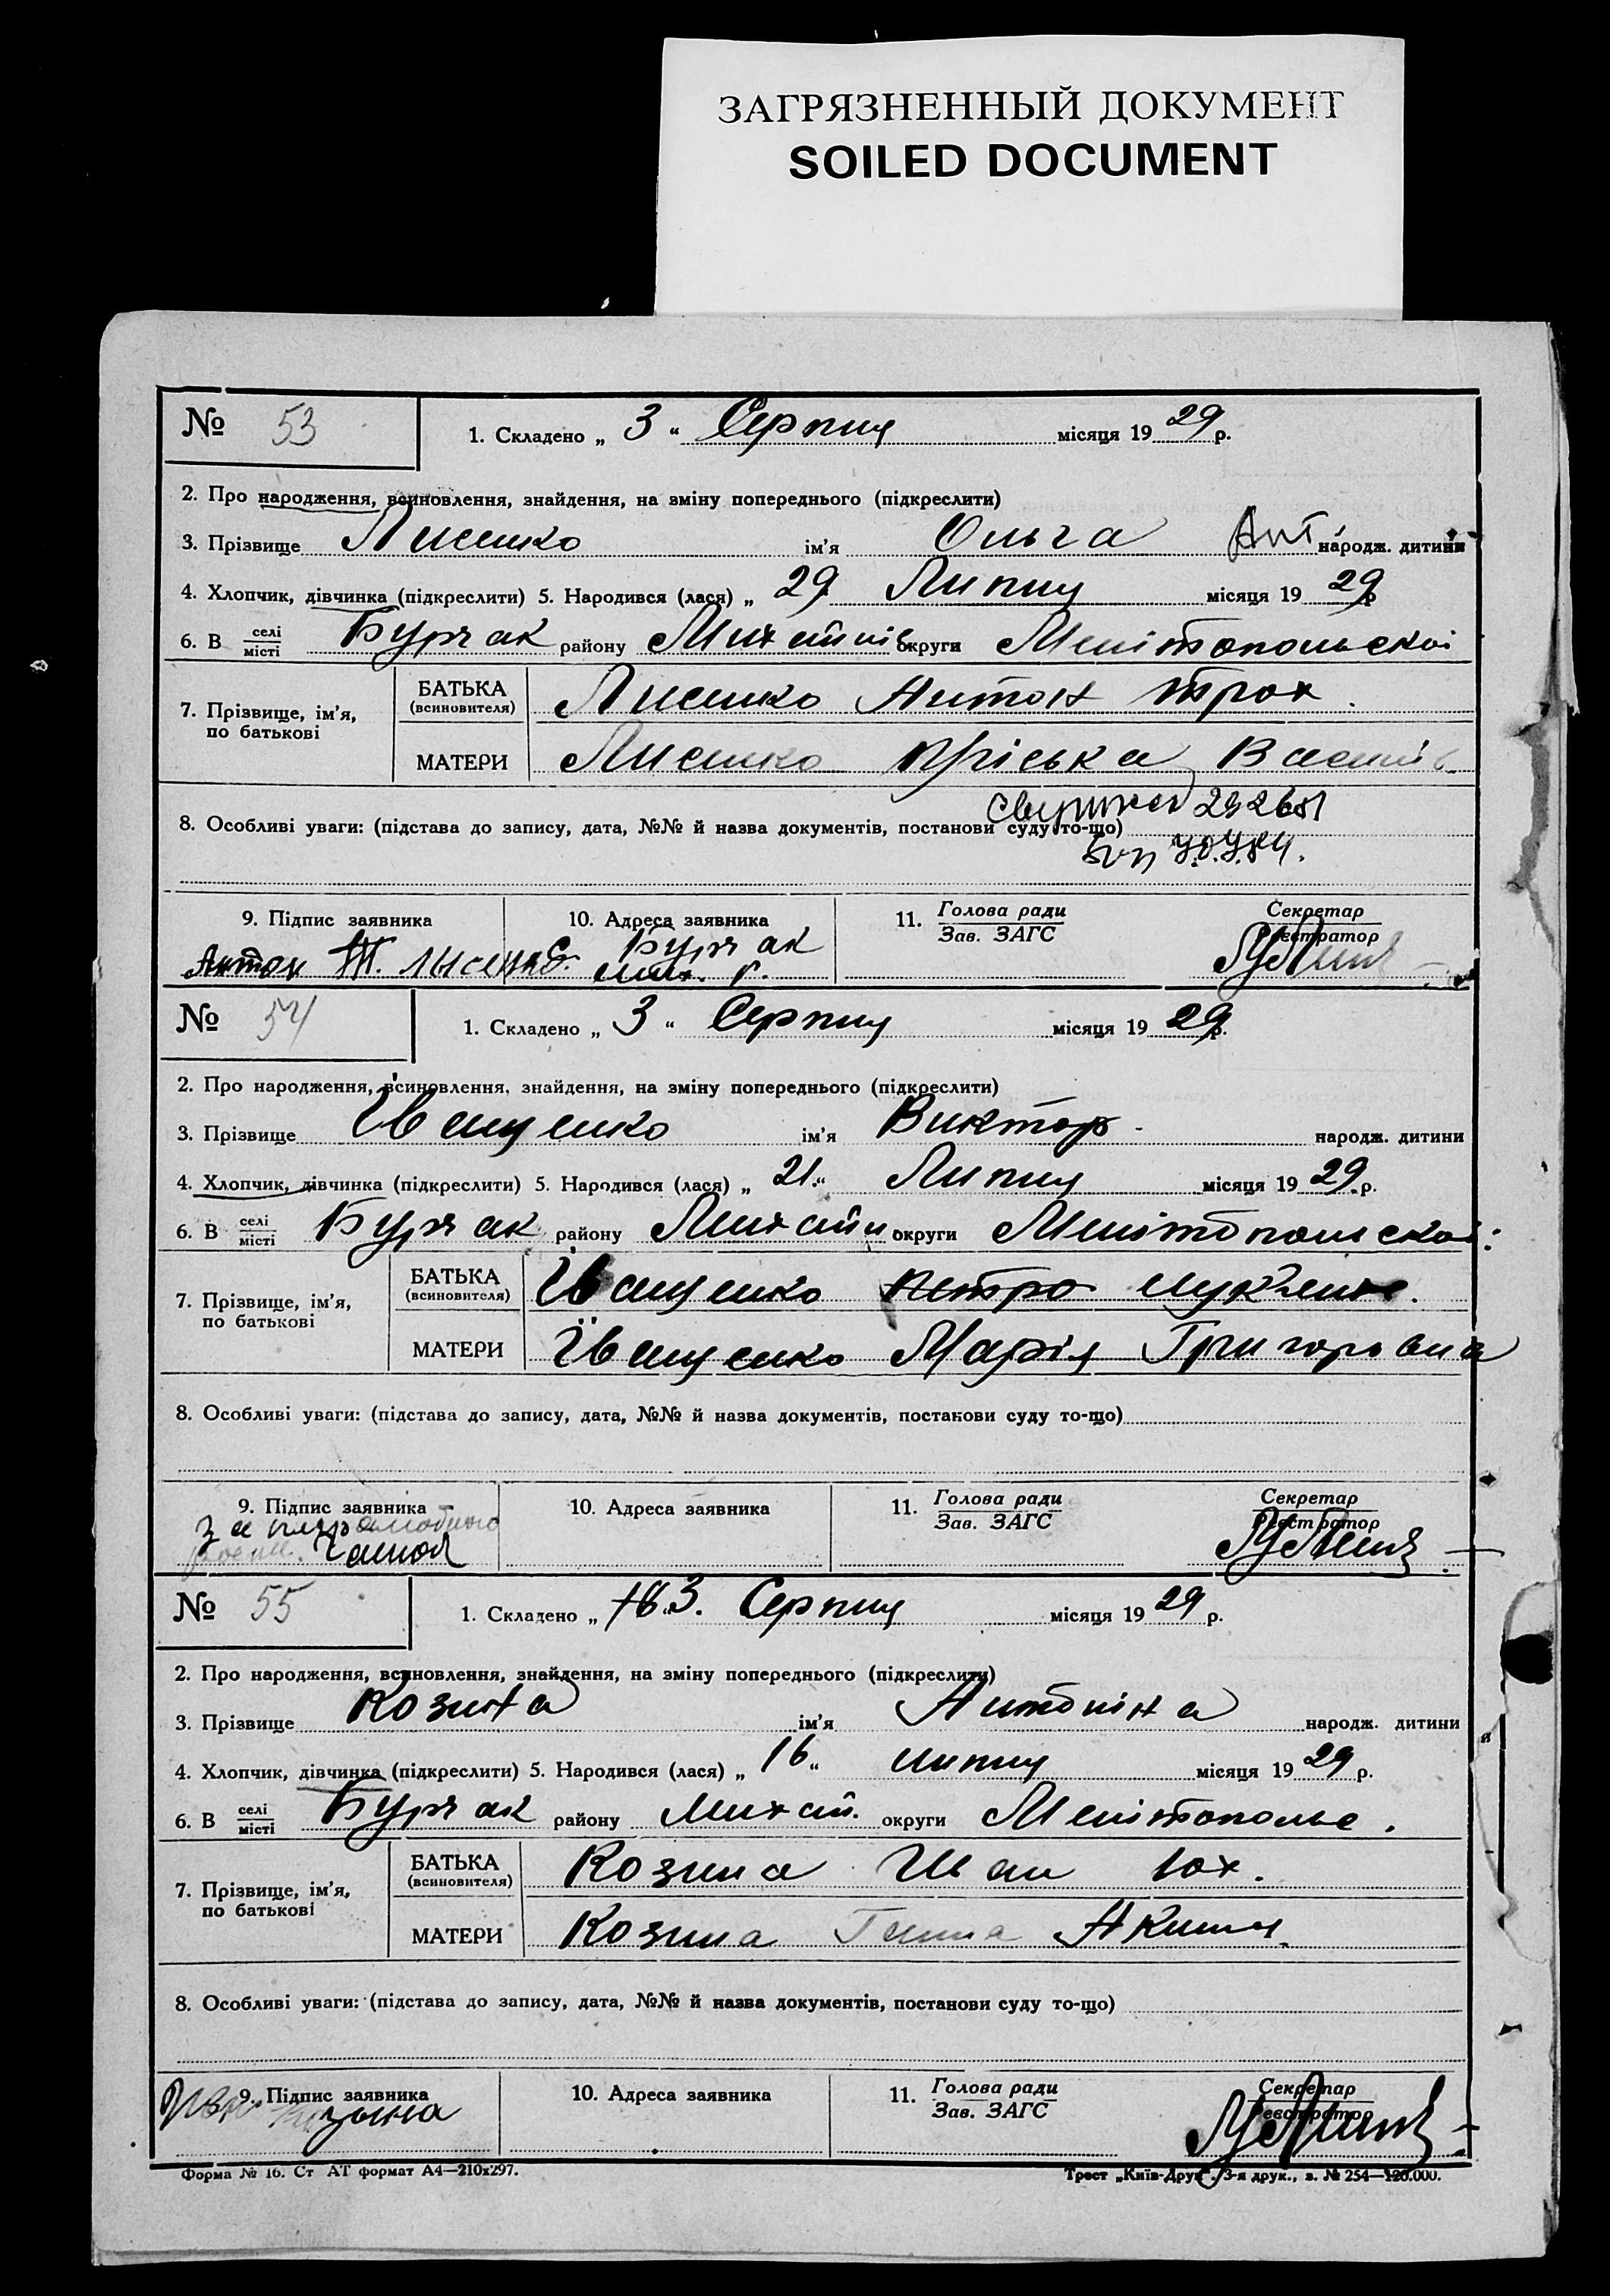 ЗАГРЯЗНЕННЫЙ ДОКУМЕНТ
SOILED DOCUMENT
№ 53
1. Складено „ 3 “ Серпня місяця 19 29 р.
2. Про народження, всиновлення, знайдення, на зміну попереднього (підкреслити)
3. Прізвище Лисенко ім’я Ольга Ант народж. дитини
4. Хлопчик, дівчинка (підкреслити) 5. Народився (лася) „ 29 Липня місяця 19 29 р
6. В селі/місті Бурчак району Михайлів округи Мелітопольскої
7. Прізвище, ім’я, по батькові
БАТЬКА (всиновителя) Лисенко Антон Трох.
МАТЕРИ Лисенко Пріська Васил
8. Особливі уваги: (підстава до запису, дата, №№ й назва документів, постанови суду то-що)
9. Підпис заявника
Антон Т. Лысенко
10. Адреса заявника
с. Бурчак
мих. р.
11. Голова ради
Зав. ЗАГС
Секретар
Реєстратор
№ 54
1. Складено „ 3 “ Серпня місяця 19 29 р.
2. Про народження, всиновлення, знайдення, на зміну попереднього (підкреслити)
3. Прізвище Іващенко ім’я Виктор народж. дитини
4. Хлопчик, дівчинка (підкреслити) 5. Народився (лася) „ 21 “ Липня місяця 19 29 р.
6. В селі/місті Бурчак району Михайл округи Мелітопольскої
7. Прізвище, ім’я, по батькові
БАТЬКА (всиновителя) Іващенко Петро
МАТЕРИ Іващенко Марія Григоровна
8. Особливі уваги: (підстава до запису, дата, №№ й назва документів, постанови суду то-що)
9. Підпис заявника
за
10. Адреса заявника
11. Голова ради
Зав. ЗАГС
Секретар
Реєстратор
№ 55
1. Складено „ 3. Серпня місяця 19 29 р.
2. Про народження, всиновлення, знайдення, на зміну попереднього (підкреслити)
3. Прізвище Козина ім’я Антоніна народж. дитини
4. Хлопчик, дівчинка (підкреслити) 5. Народився (лася) „ 16 “ липня місяця 19 29 р.
6. В селі/місті Бурчак району Михай. округи Мелітопольс.
7. Прізвище, ім’я, по батькові
БАТЬКА (всиновителя) Козина Иван Юх.
МАТЕРИ Козина Ганна
8. Особливі уваги: (підстава до запису, дата, №№ й назва документів, постанови суду то-що)
9. Підпис заявника
10. Адреса заявника
11. Голова ради
Зав. ЗАГС
Секретар
Реєстратор
Форма № 16. Ст АТ формат А4—210х297.
Трест „Київ-Друк“. 3-я друк., з. № 254—120.000.